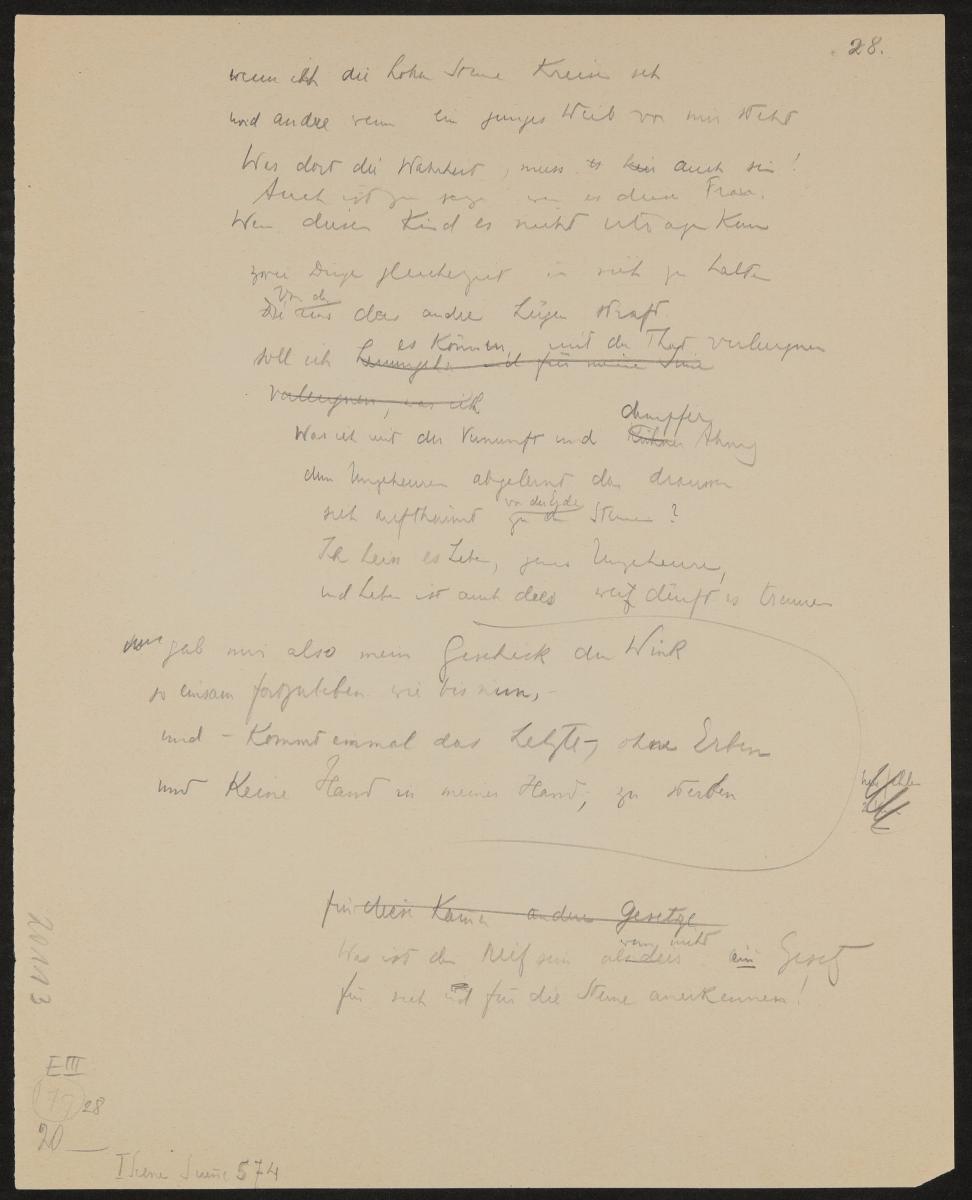 28.
wenn ich die hohen Sterne Kreisen seh
und andre wenn ein junges Weib vor mir steht
Was dort die Wahrheit, muss es hier auch sein!
Auch ist zu es diese Frau.
Wenn dieses Kind es nicht ertragen kann
zwei Dinge gleichzeit in sich zu halten
Von den
Die eins das andre Lügen straft.
es können, mit der That verleugnen
soll ich und für meine
verleugnen, was ich
dumpfer
Was ich mit der Vernunft und Ahnung
dem Ungeheuren abgelernt das draussen
von der Erde
sich aufthürmt zu den Sternen?
Ich heiss es Leben, jenes Ungeheure,
und Leben ist auch dies
gab mir also mein Geschick den Wink
so einsam fortzuleben wie bis nun,-
und - kommt einmal das Letzte-, ohne Erben
und keine Hand in meiner Hand, zu sterben
für diese keine andren Gesetze
wenn nicht
Was ist denn Reif sein als dies ein Gesetz
für sich und für die Sterne anerkennen!
20113
EIII
17
28
20
I Scene 574